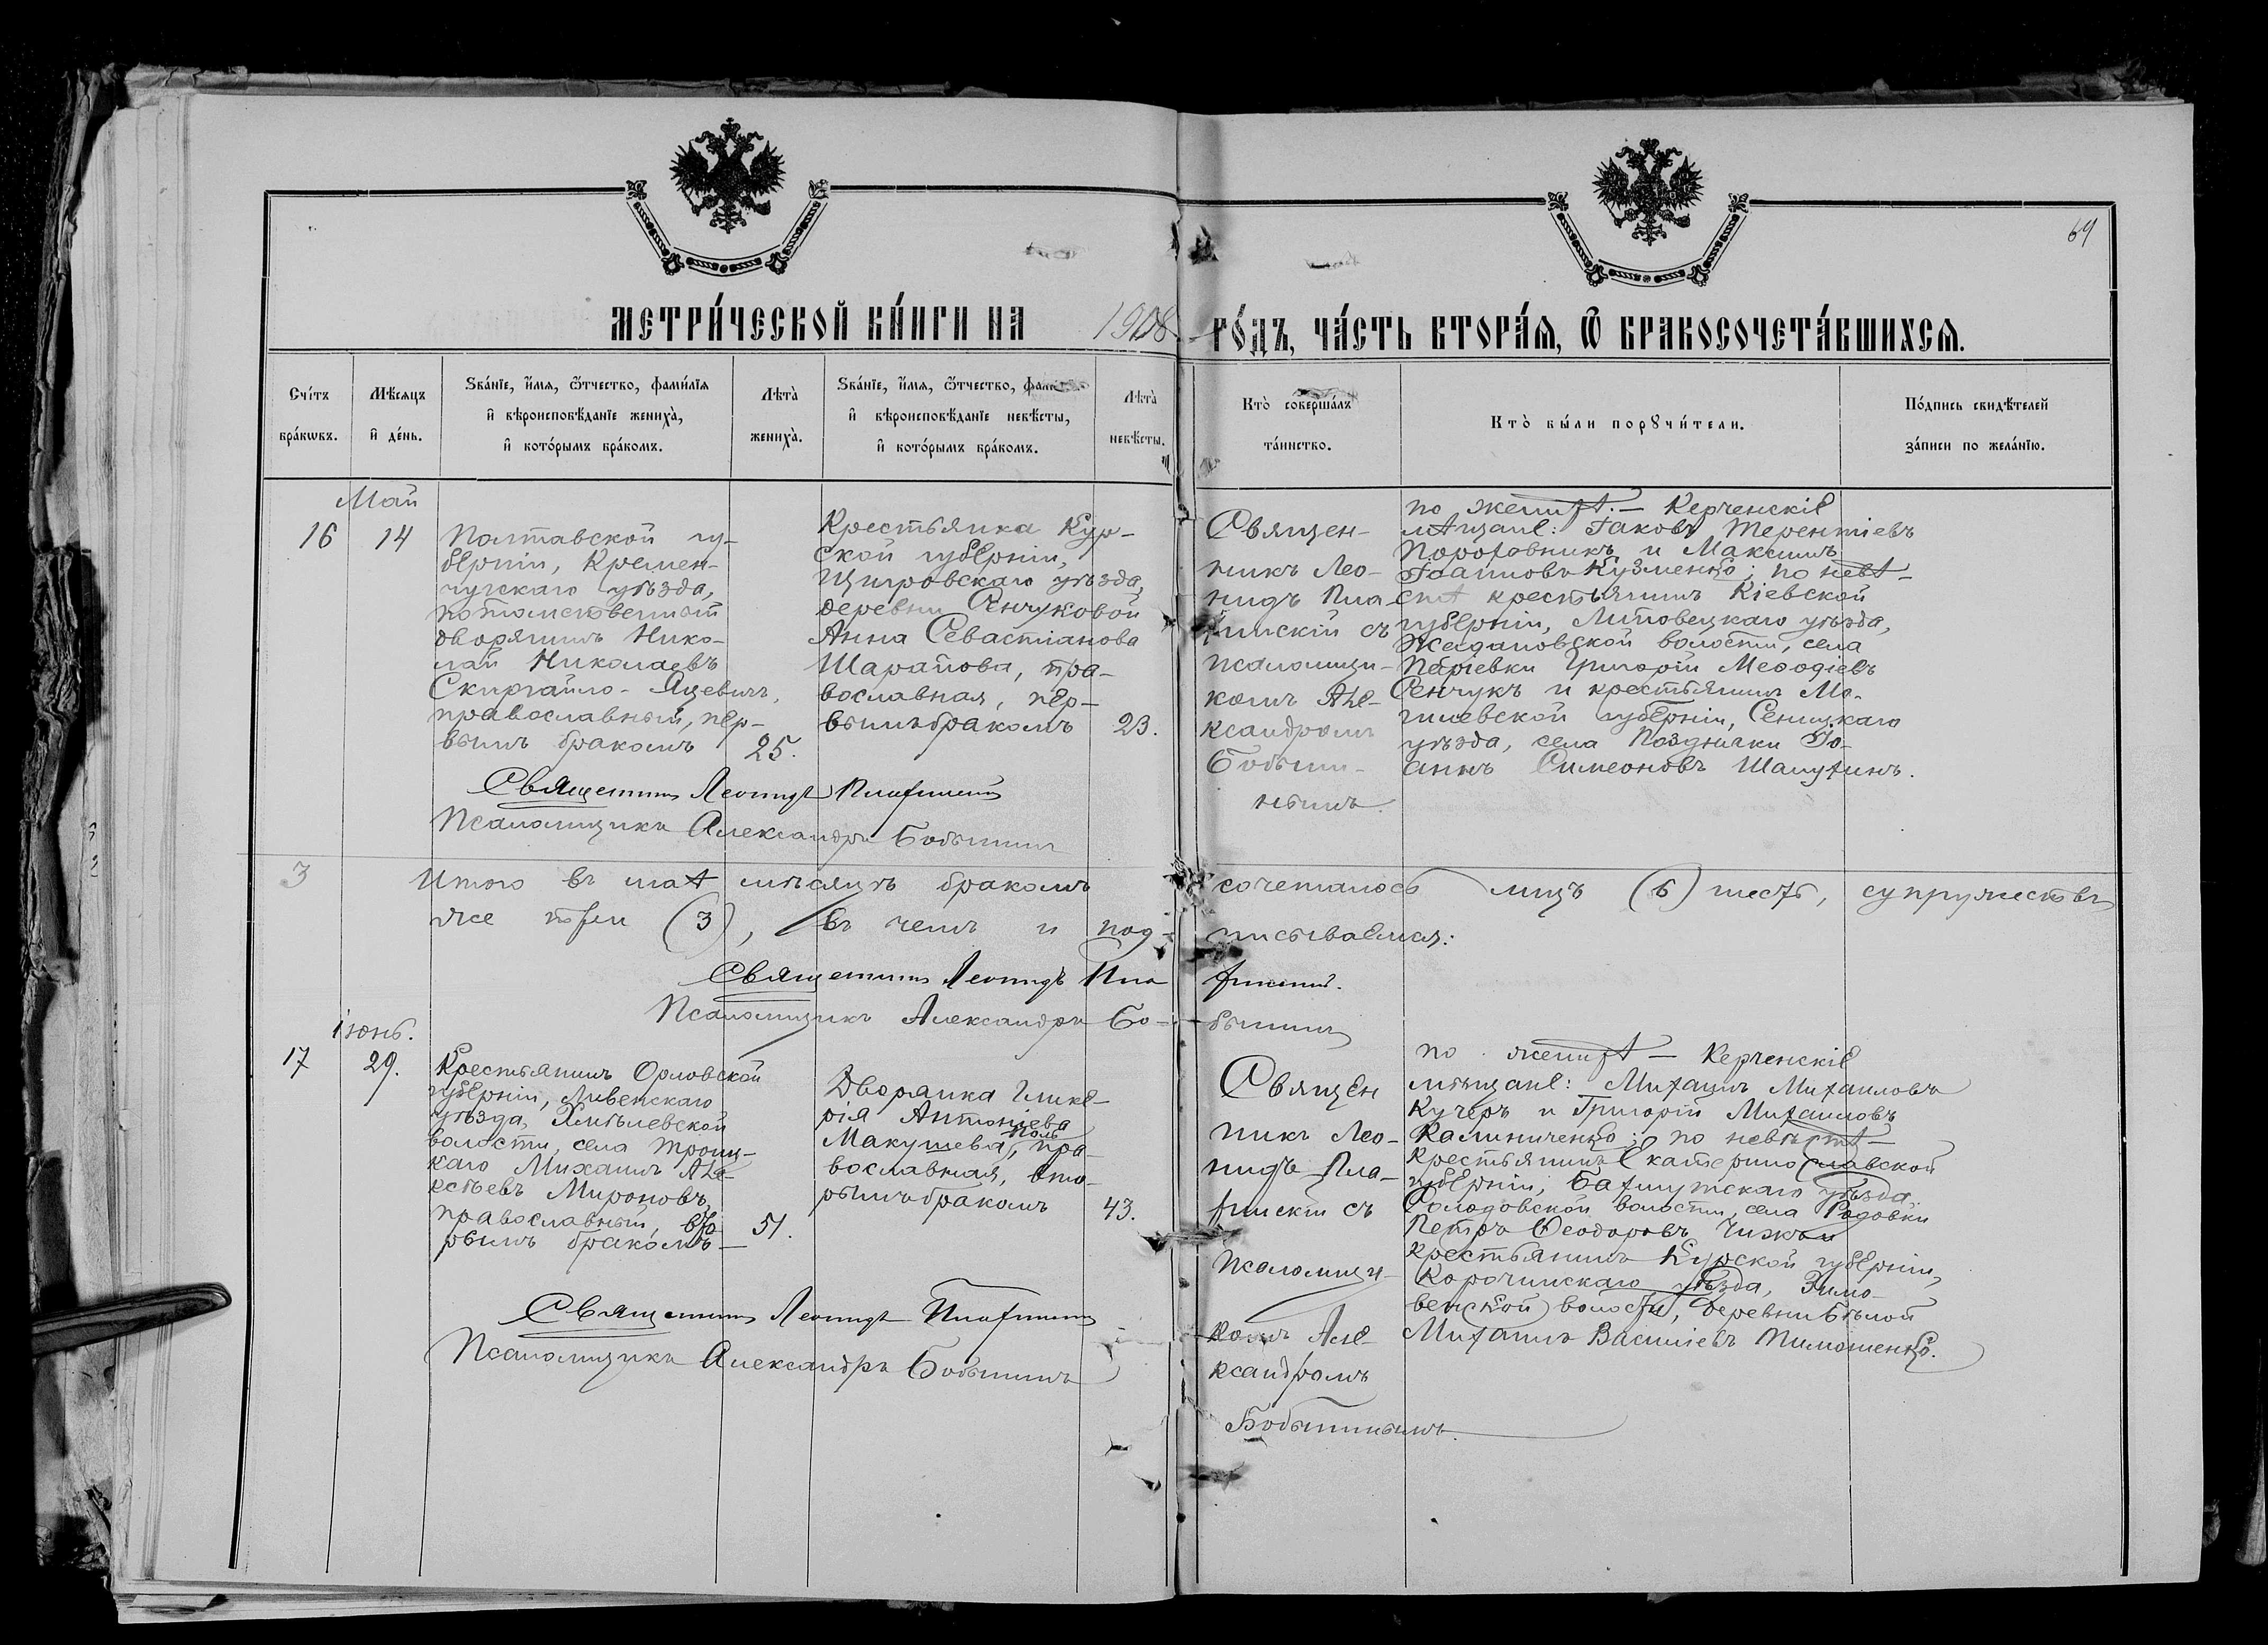 69
МЕТРИ́ЧЕСКОЙ КНИ́ГИ НА 1908 ГО́ДЪ, ЧА́СТЬ ВТОРА́Я, Ѿ БРАКОСОЧЕТА́ВШИХСЯ.
Сче́тъ
бра́кѡвъ.
Мѣ́сяцъ
и҆ де́нь.
Ѕва́нїе, и҆́мя, ѻ҆́тчество, фами́лїя
и҆ вѣроисповѣ́данїе жениха̀,
и҆ кото́рымъ бра́комъ.
Лѣта̀
жениха̀.
Ѕва́нїе, и҆́мя, ѻ҆́тчество,
и҆ вѣроисповѣ́данїе невѣ́сты,
и҆ кото́рымъ бра́комъ.
Лѣта̀
невѣ́сты.
Кто̀ соверша́лъ
та́инство.
Кто̀ бы́ли порꙋчи́тели.
По́дпись свидѣ́телей
за́писи по жела́нїю.
Май
16
14
Полтавской гу-
берніи, Кремен-
чугскаго уѣзда,
потомственный
дворянинъ Нико-
лай Николаевъ
Скиргайло-Яцевичъ,
православный, пер-
вымъ бракомъ
25.
Крестьянка Кур-
ской губерніи,
Щигровскаго уѣзда,
деревни Сенчуковой
Анна Севастіанова
Шарапова, пра-
вославная, пер-
вымъ бракомъ
23.
Священ-
никъ Лео-
нидъ Пла-
финскій съ
псаломщи-
комъ Але-
ксандромъ
Бобыш-
нымъ.
по женихѣ: — Керченскіе
мѣщане: Іаковъ Терентіевъ
Пороховникъ и Максимъ
Іоанновъ Кузменко; по невѣ-
стѣ крестьянинъ Кіевской
губерніи, Липовецкаго уѣзда,
Жадановской волости, села
Паріевки Григорій Меѳодіевъ
Сенчукъ и крестьянинъ Мо-
гилевской губерніи, Сенницкаго
уѣзда, села Позднячки Іо-
аннъ Симеоновъ Шапухинъ.
Священникъ Леонидъ
Псаломщикъ Александръ
3
Итого въ маѣ мѣсяцѣ бракомъ сочеталось лицъ (6) шесть, супружествъ
же три (3), въ чемъ и подписываемся:
Священникъ Леонидъ
Псаломщикъ Александръ
Іюнь.
17
29.
Крестьянинъ Орловской
губерніи, Ливенскаго
уѣзда, Хмѣлевской
волости, села Троиц-
каго Михаилъ Але-
ксѣевъ Мироновъ,
православный, вто-
рымъ бракомъ —
51.
Дворянка Глике-
рія Антоніева
Макушева, пра-
вославная, вто-
рымъ бракомъ
43.
Священ
никъ Лео-
нидъ Пла-
финскій съ
псаломщи-
комъ Але-
ксандромъ
по женихѣ — Керченскіе
мѣщане: Михаилъ Михаиловъ
Кучеръ и Григорій Михаиловъ
Калиниченко; по невѣстѣ —
крестьянинъ Екатеринославской
губерніи, Бахмутскаго уѣзда
волости, села
Петръ Ѳеодоровъ Чижъ и
крестьянинъ Курской губерніи,
Корочинскаго уѣзда, Зимо-
венской волости, деревни Бѣлой
Михаилъ Василіевъ Тимошенко.
Священникъ Леонидъ
Псаломщикъ Александръ